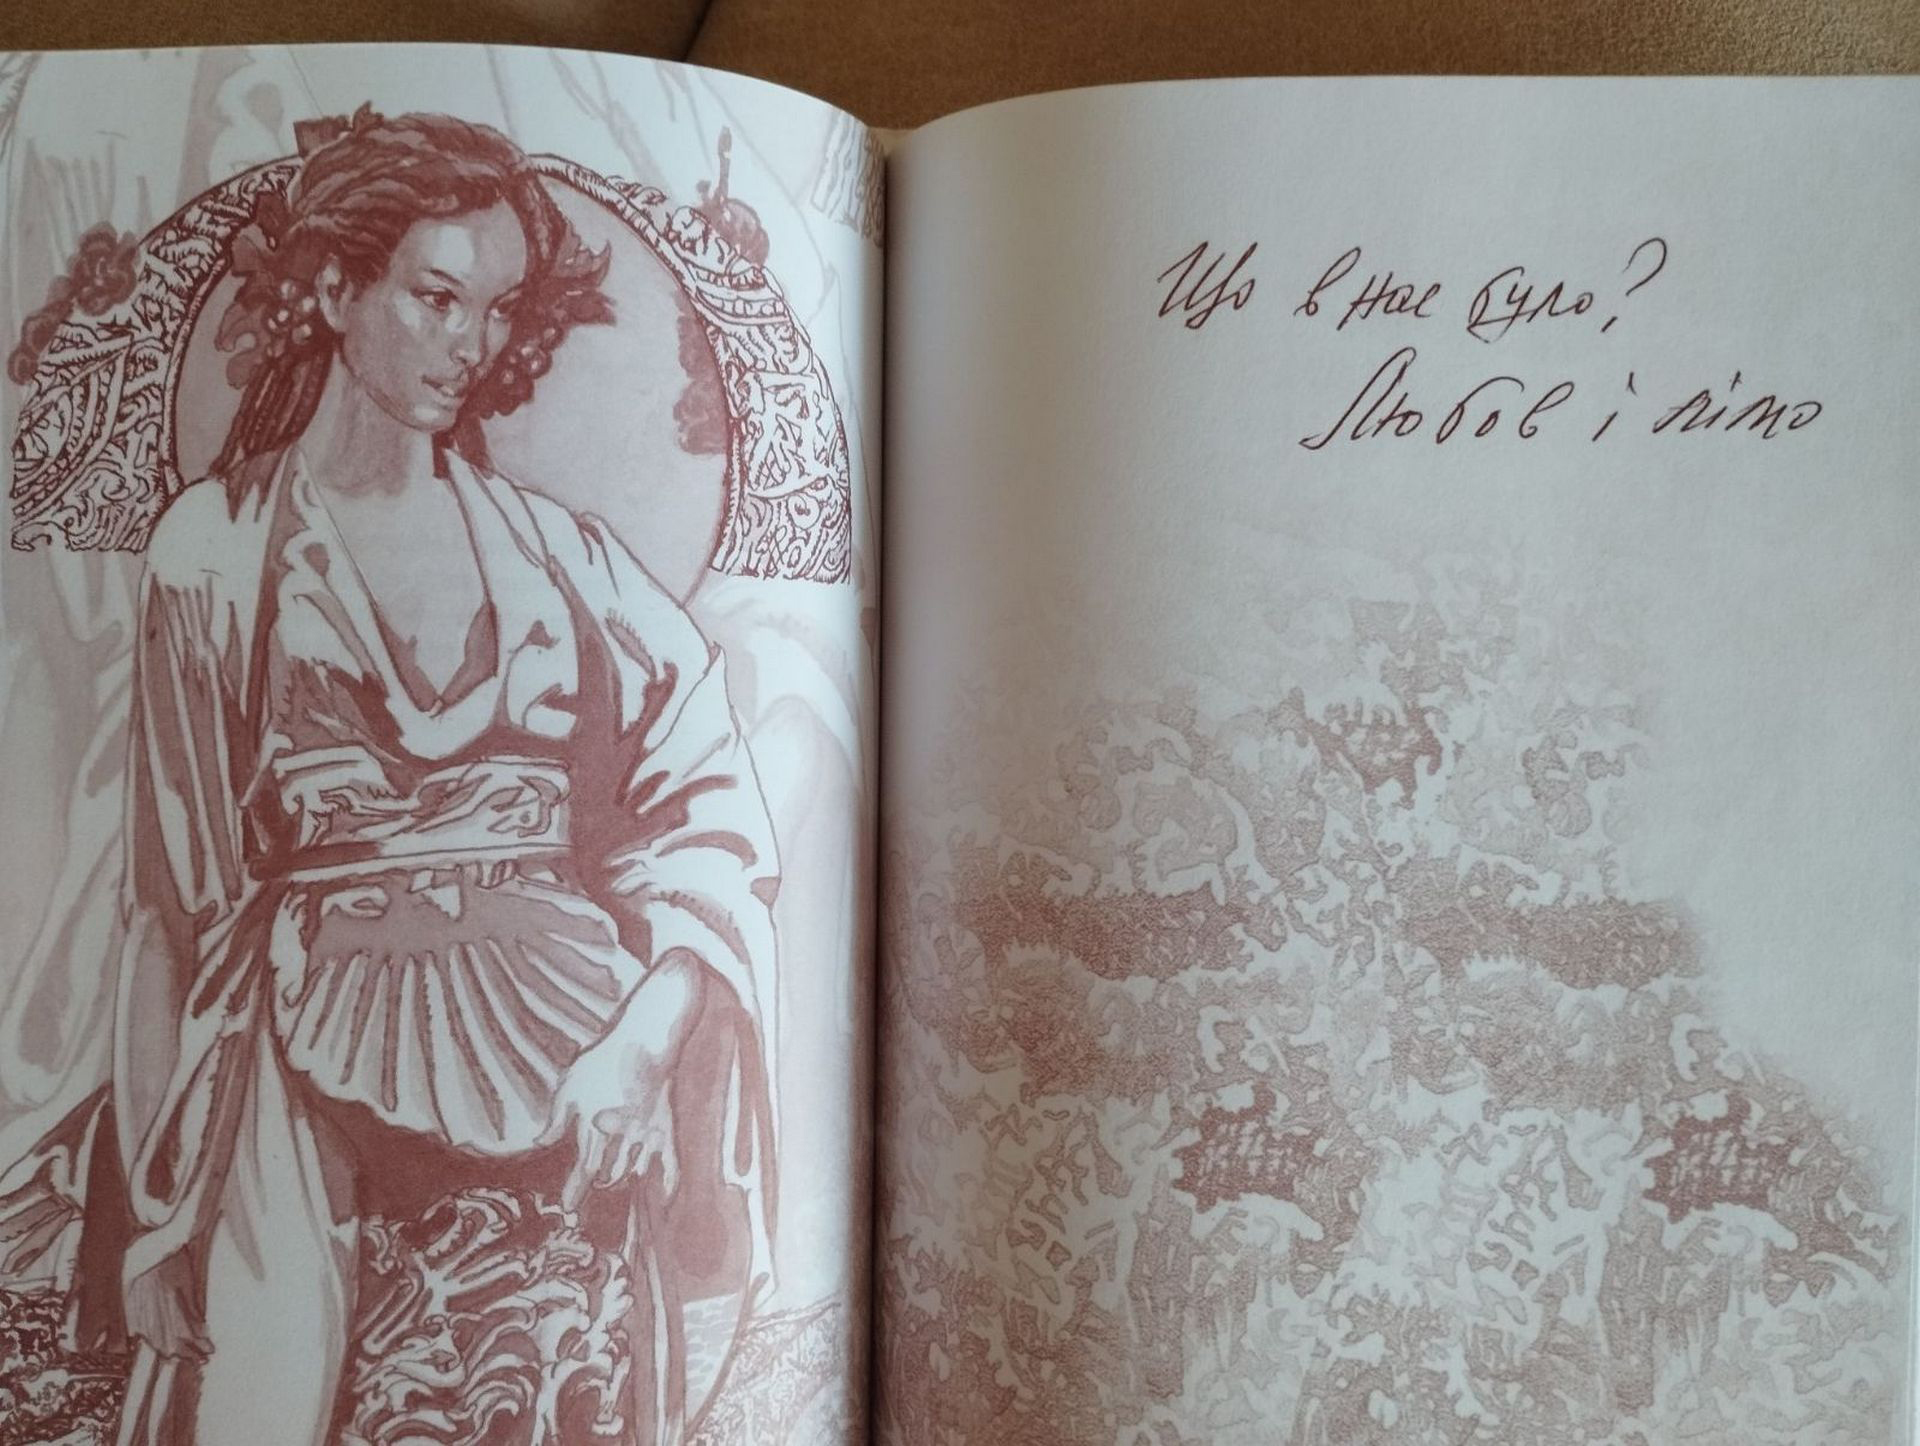 Що в нас було?
Любов і літо